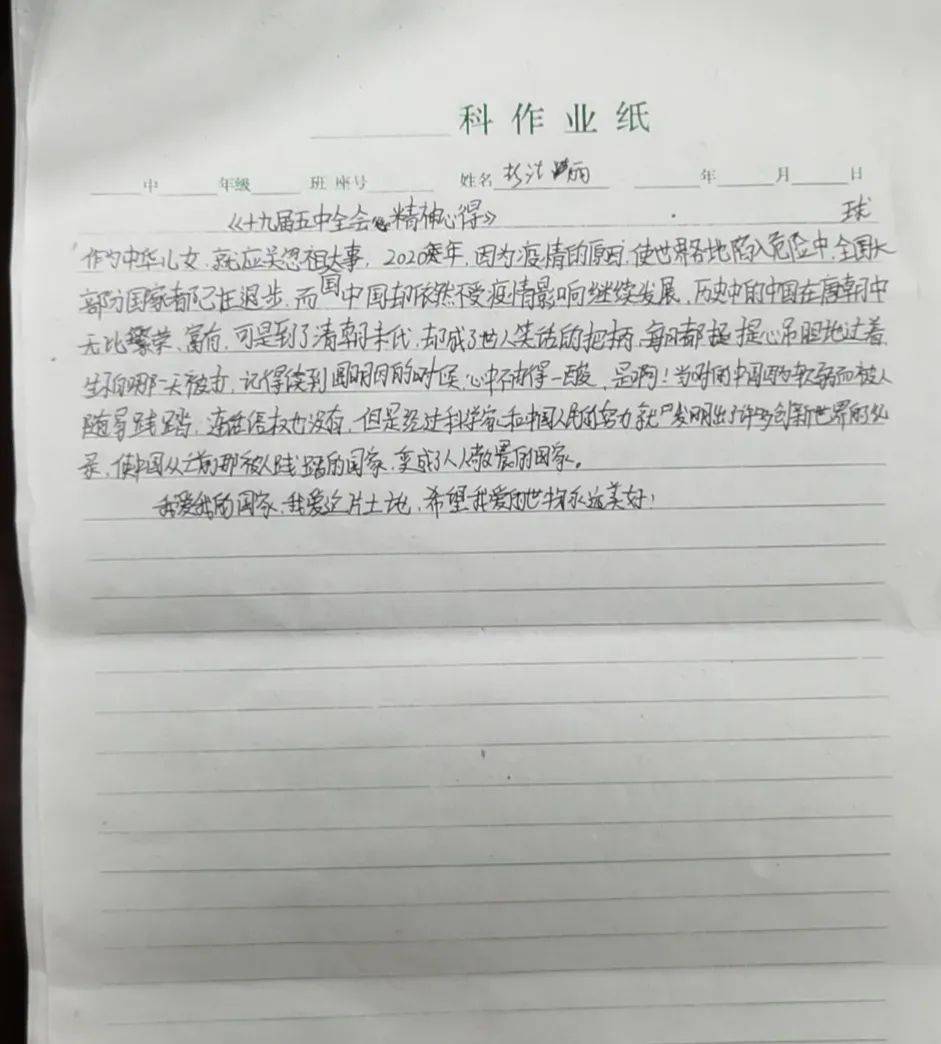 科作业纸
中 年级 班 座号 姓名 丽 年 月 日
《十九届五中全会精神心得》 球
作为中华儿女,就应关忽祖大事,2020年,因为疫情的原因,使世界各地陷入危险中,全国大
部分国家都已在退步,而国中国却依然不受疫情影响继续发展,历史中的中国在唐朝中
无比繁荣、富有,可是到了清朝末代,却成了世人笑话的把柄,每日都提提心吊胆地过着,
生怕哪一天被打,记得读到圆明园的时候,心中不由得一酸,是啊!当时的中国因为软弱而被人
随意践踏,连话语权也没有,但是经过科学家和中国人民的努力就发明出了许多创新世界的纪
录,使中国从之前那被人践踏的国家,变成了人人敬畏的国家。
我爱我的国家,我爱这片土地,希望我爱的她永远美好!